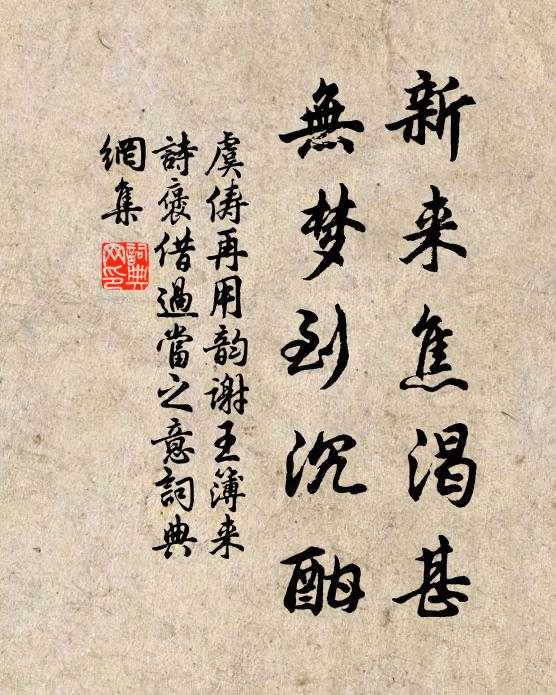 新来焦渴甚
無梦到沉酣
虞俦再用韵谢王簿来
詩褒借過當之意詞典
網集
詞典网印